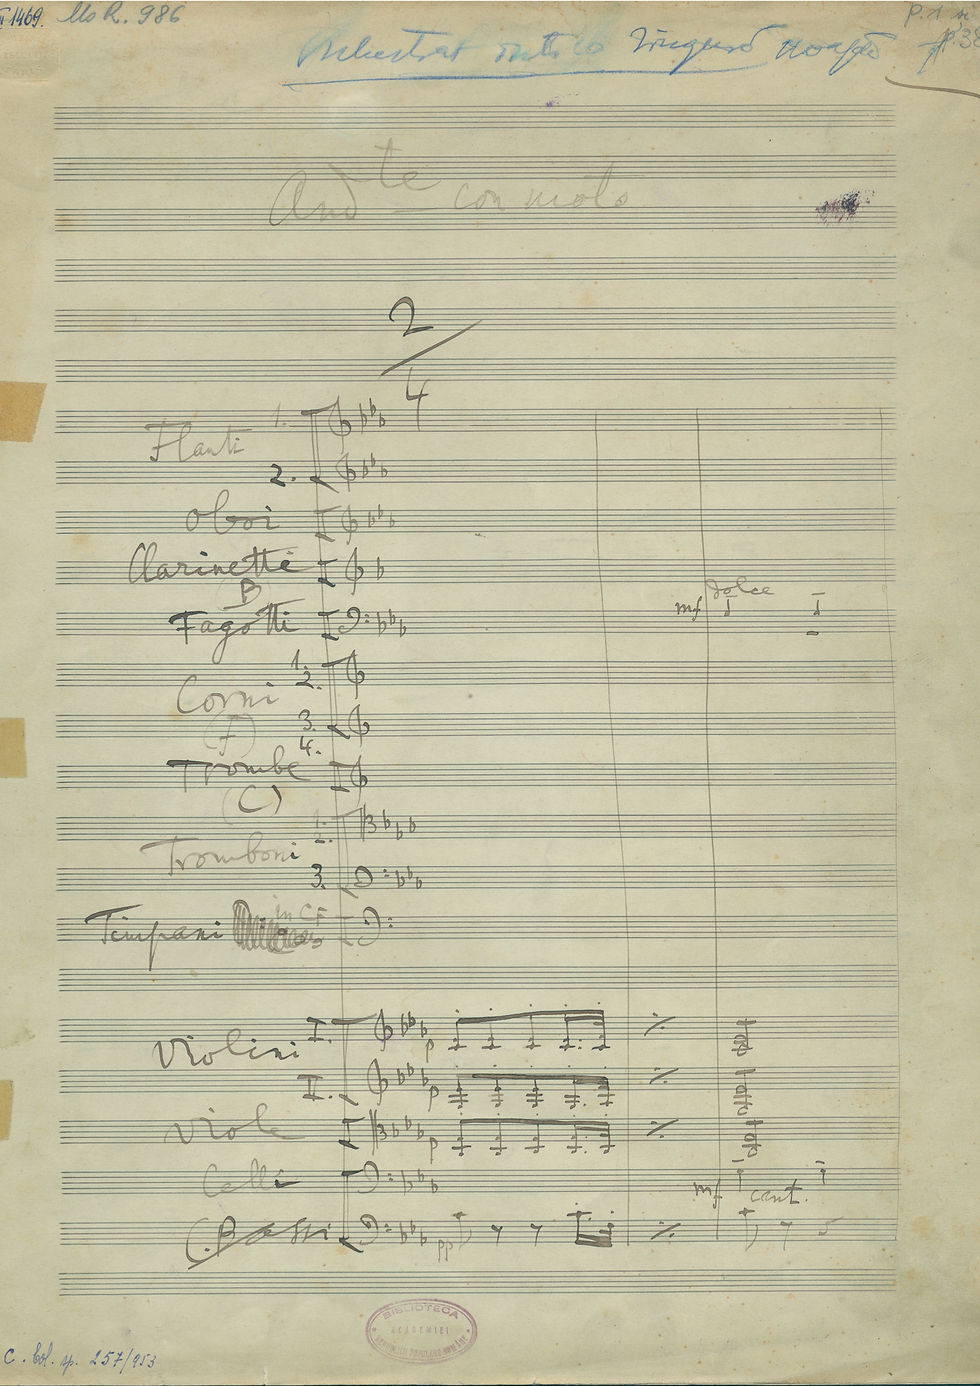 II 1469. Ms R. 986
p. 1
And te con moto
2
4
Flauti 1.
2.
Oboi
Clarinetti
B
dolce
Fagotti mf
Corni 1.
2.
(F) 3.
4.
Trombe
(C)
Tromboni 1.
2.
3.
Timpani in C F
Violini I. p
II. p
Viole p
Celli mf cant.
C. Bassi pp
BIBLIOTECA
ACADEMIEI
C. bol. sp. 257/953